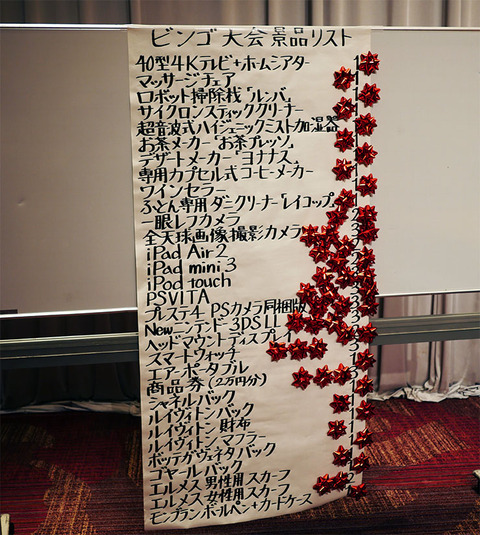 ビンゴ大会景品リスト
40型4Kテレビ+ホームシアター 1
マッサージチェア
ロボット掃除機「ルンバ」 1
サイクロンスティッククリーナー
超音波式ハイジェニックミスト加湿器
お茶メーカー「お茶プレッソ」
デザートメーカー「ヨナナス」
専用カプセル式コーヒーメーカー 1
ワインセラー
ふとん専用ダニクリーナー「レイコップ」
一眼レフカメラ 2
全天球画像撮影カメラ
iPad Air2
iPad mini3
iPod touch
PSVITA
プレステ4 PSカメラ同梱版
Newニンテンドー3DSLL
ヘッドマウントディスプレイ
スマートウォッチ
エアーポータブル
商品券(2万円分)
シャネルバック
ルイヴィトンバック
ルイヴィトン財布
ルイヴィトンマフラー
ボッテガヴェネタバック
ゴヤールバック
エルメス男性用スカーフ
エルメス女性用スカーフ
モンブランボールペン+カードケース